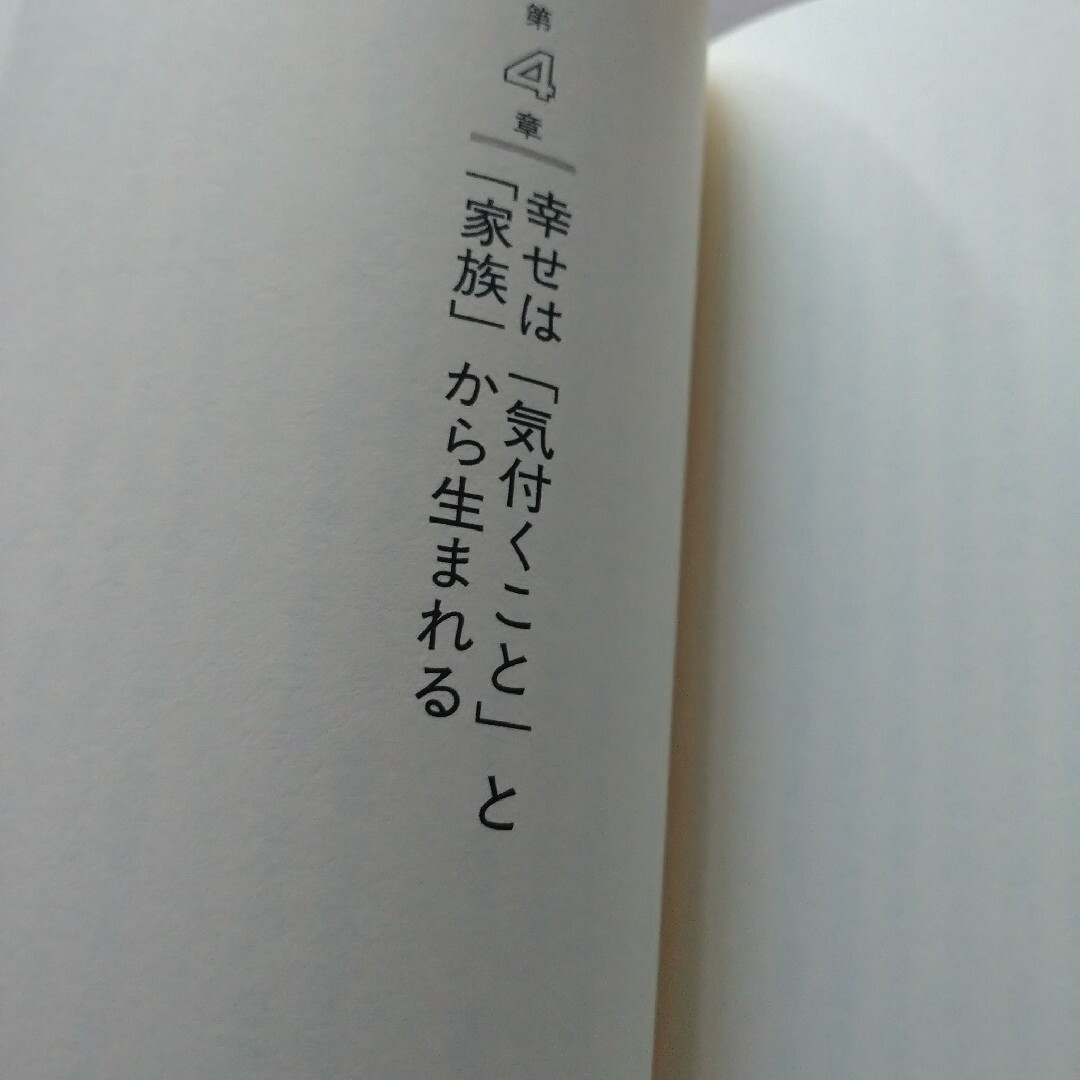 第4章
幸せは「気付くこと」と
「家族」から生まれる